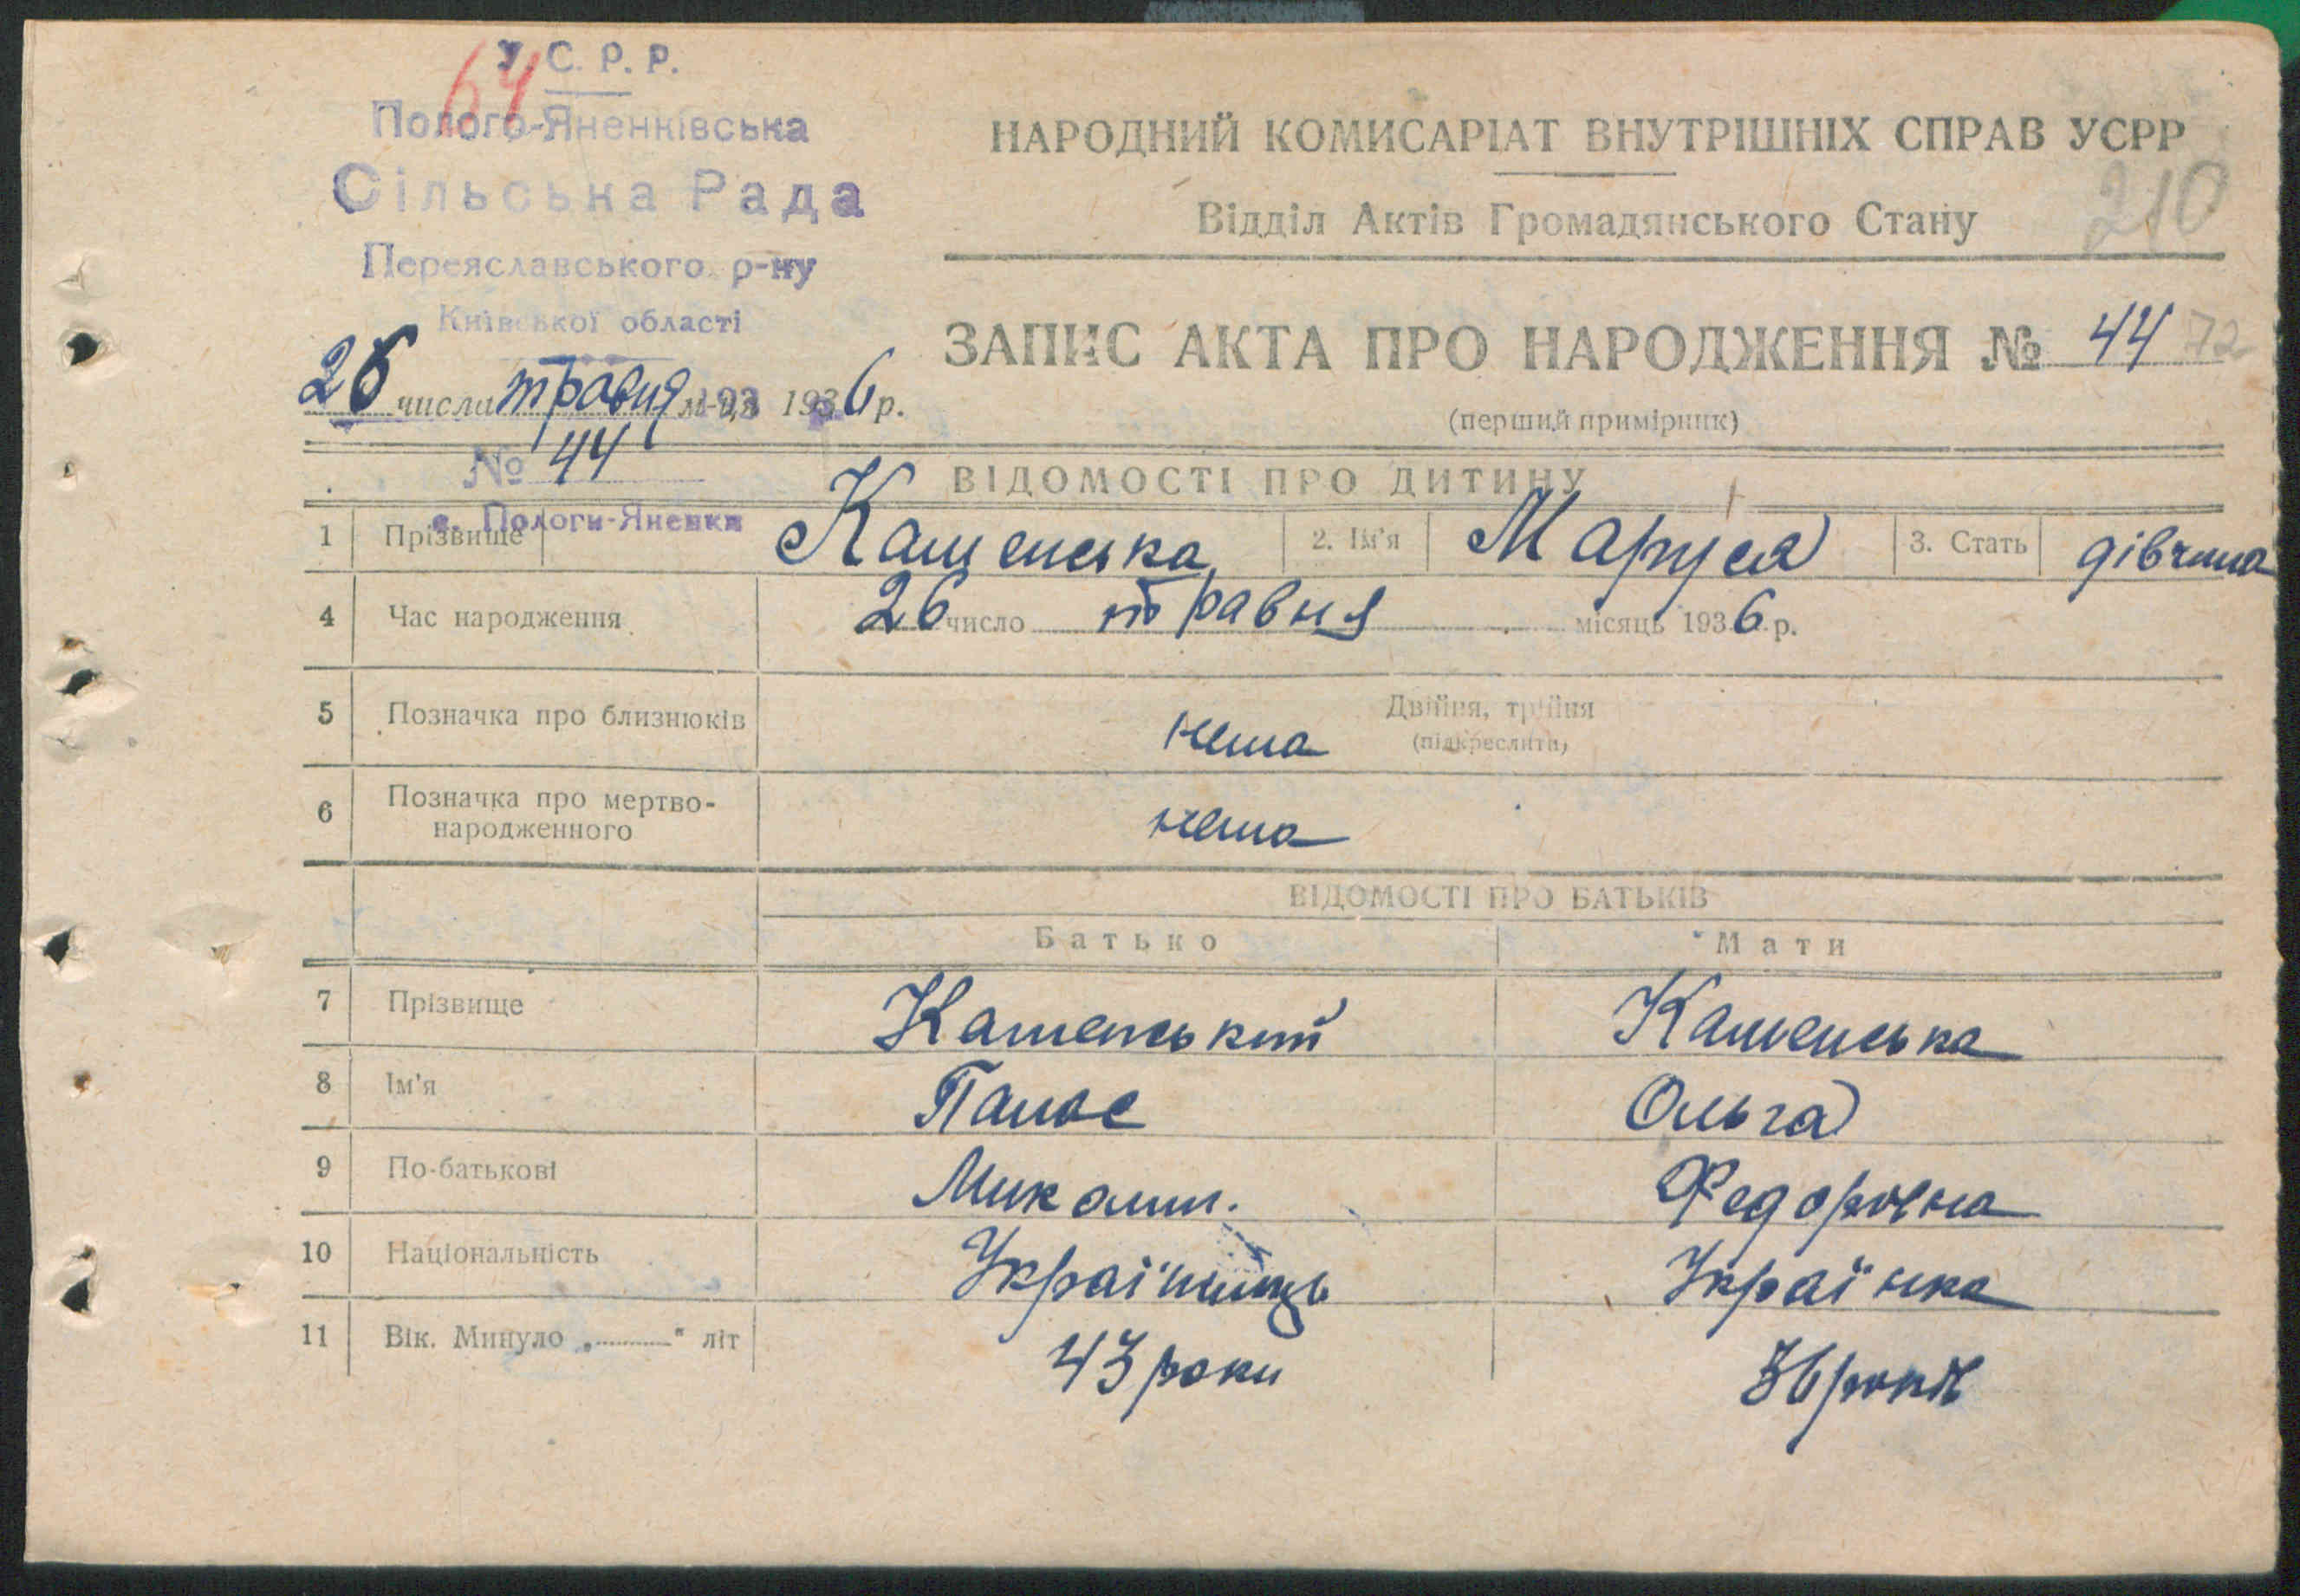 У.С.Р.Р.
64
Полого-Яненківська
Сільська Рада
Переяславського р-ну
Київської області
26 числа травня м-ця 1936 р.
№ 44
с. Пологи-Яненки
НАРОДНИЙ КОМИСАРІАТ ВНУТРІШНІХ СПРАВ УСРР
210
Відділ Актів Громадянського Стану
ЗАПИС АКТА ПРО НАРОДЖЕННЯ № 44 72
(перший примірник)
ВІДОМОСТІ ПРО ДИТИНУ
1 Прізвище Каменська 2. Ім'я Маруся 3. Стать дівчина
4 Час народження 26 число травня місяць 1936 р.
5 Позначка про близнюків нема Двійня, трійня
(підкреслити)
6 Позначка про мертво-
народженного нема
ВІДОМОСТІ ПРО БАТЬКІВ
Батько Мати
7 Прізвище Каменський Каменська
8 Ім'я Панас Ольга
9 По-батькові Микол. Федоровна
10 Національність Українець Українка
11 Вік. Минуло „ " літ 43 роки 36 років